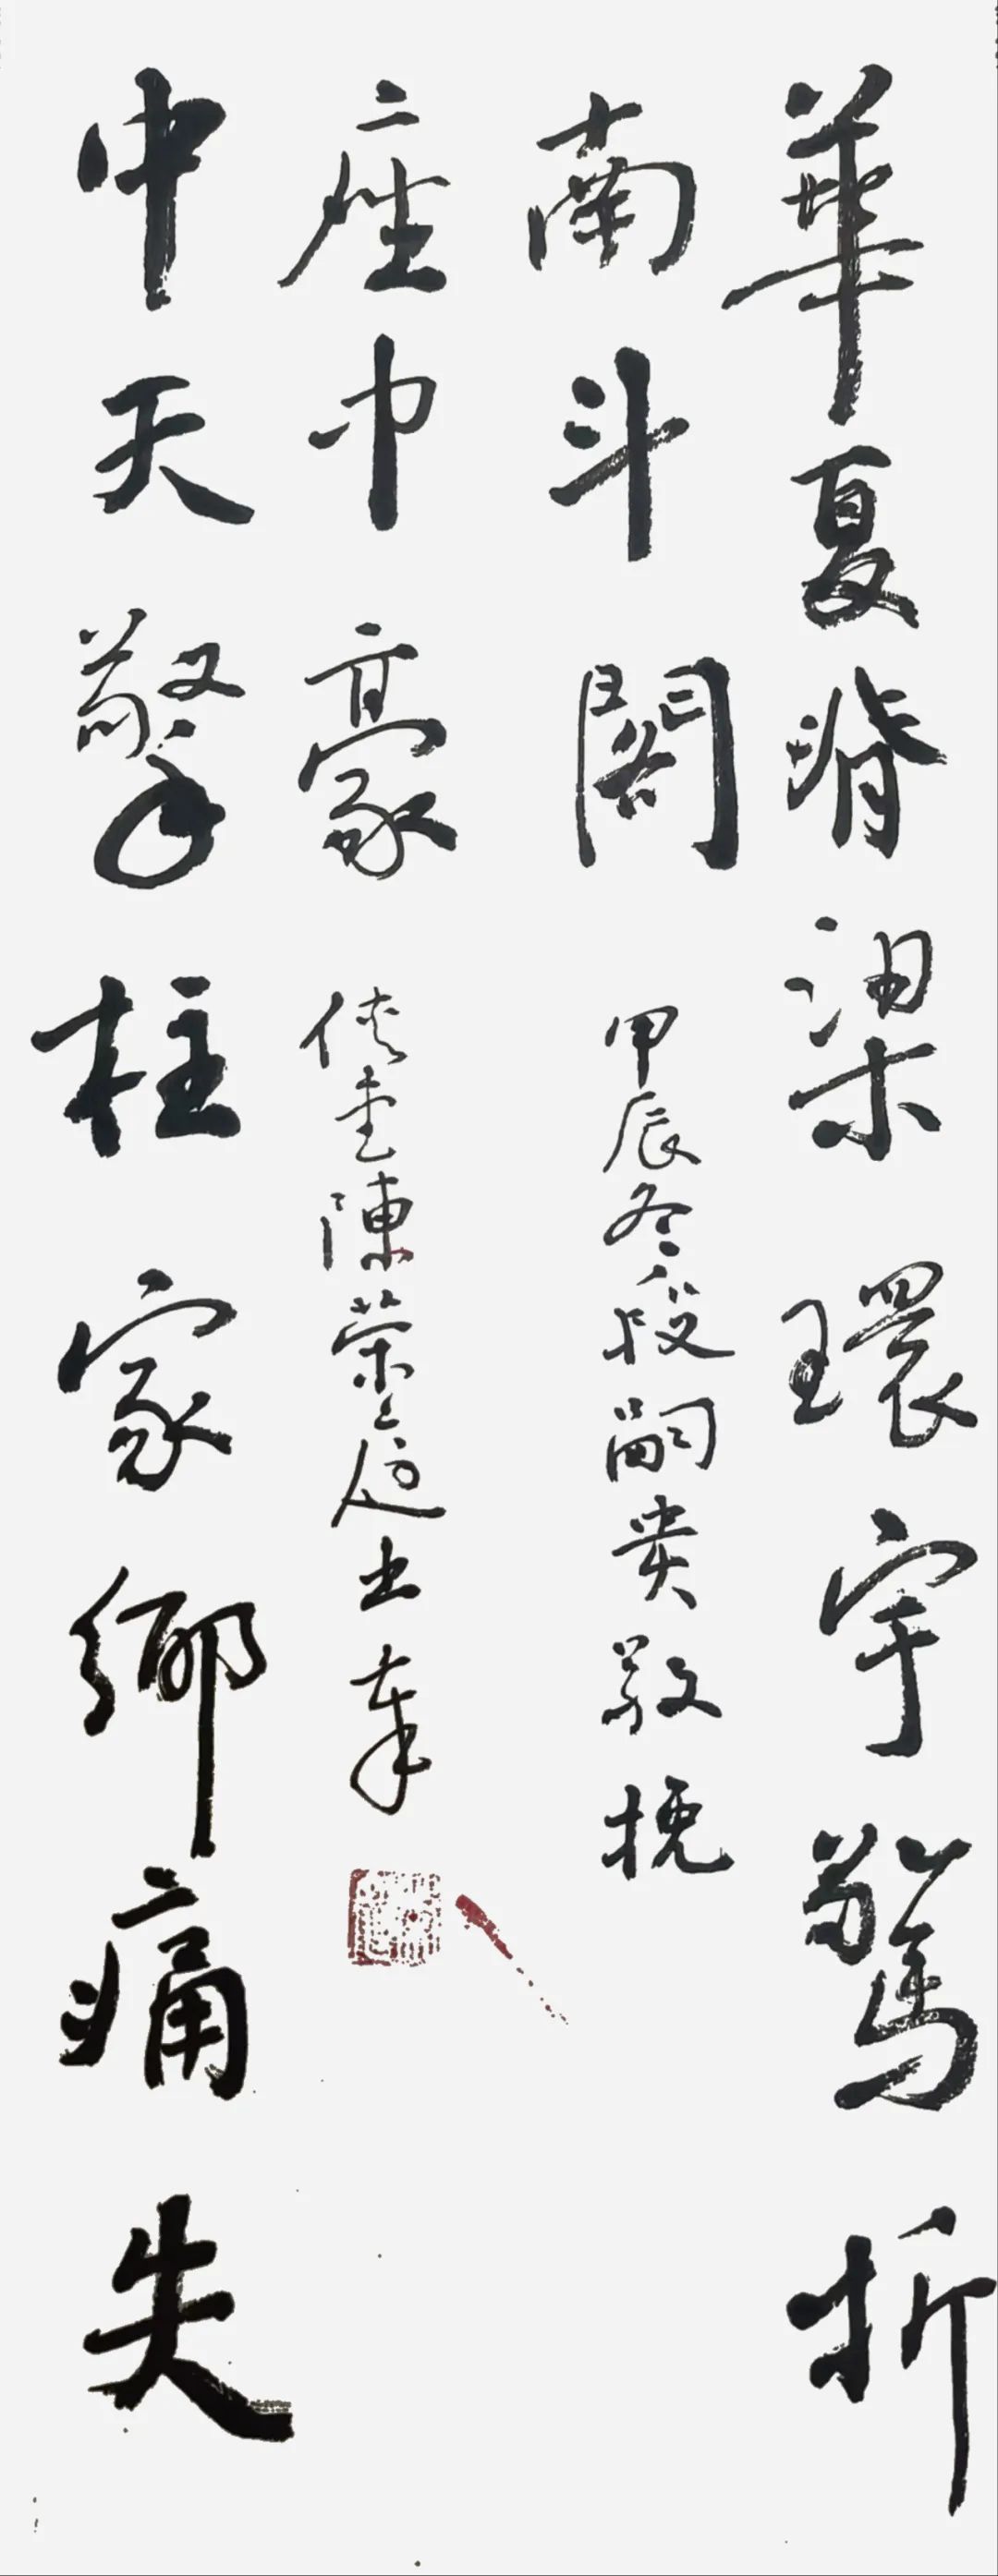 華夏脊梁環宇驚折
南斗閣
甲辰冬段嗣貴敬挽
中天擎柱家鄉痛失
座中豪
陳榮庭书奉